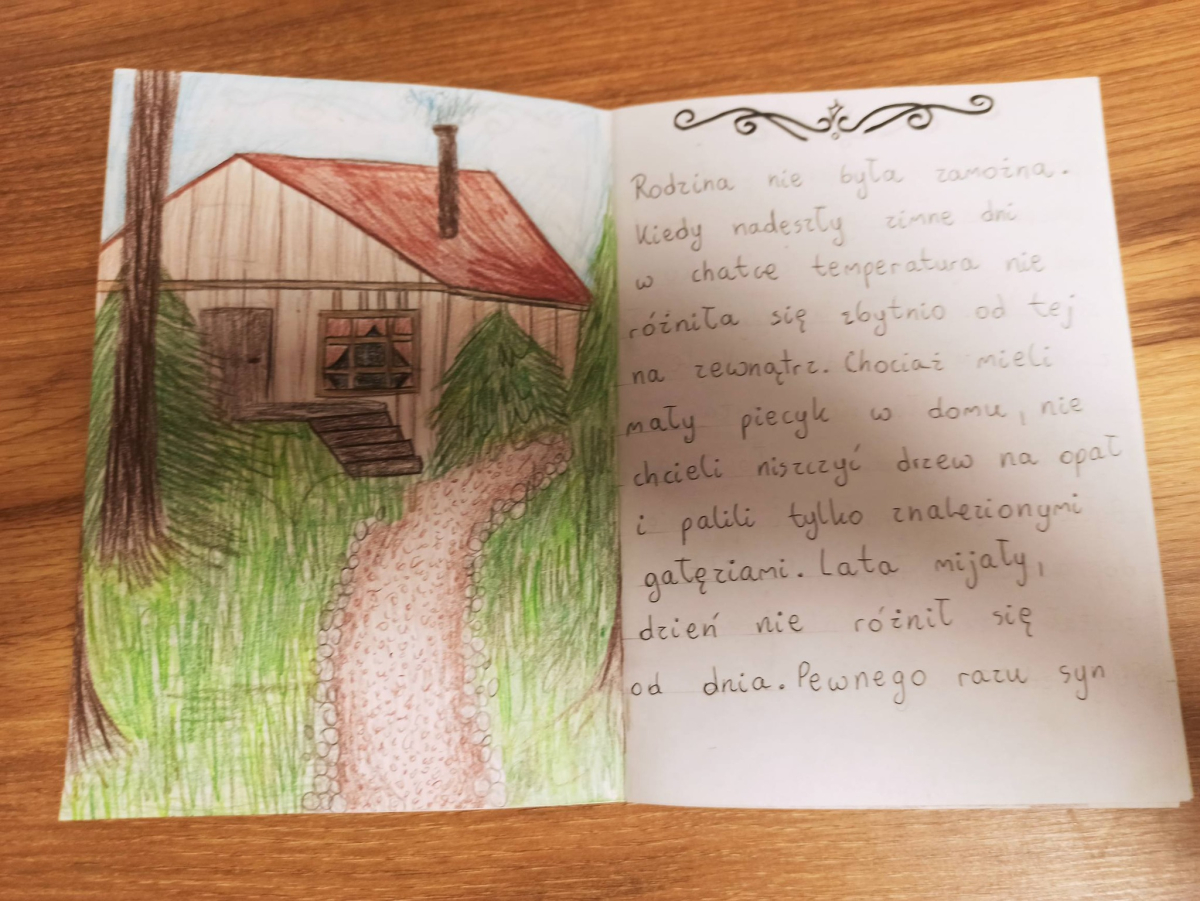 Rodzina nie była zamożna.
Kiedy nadeszły zimne dni
w chatce temperatura nie
różniła się zbytnio od tej
na zewnątrz. Chociaż mieli
mały piecyk w domu, nie
chcieli niszczyć drzew na opał
i palili tylko znalezionymi
gałęziami. Lata mijały,
dzień nie różnił się
od dnia. Pewnego razu syn